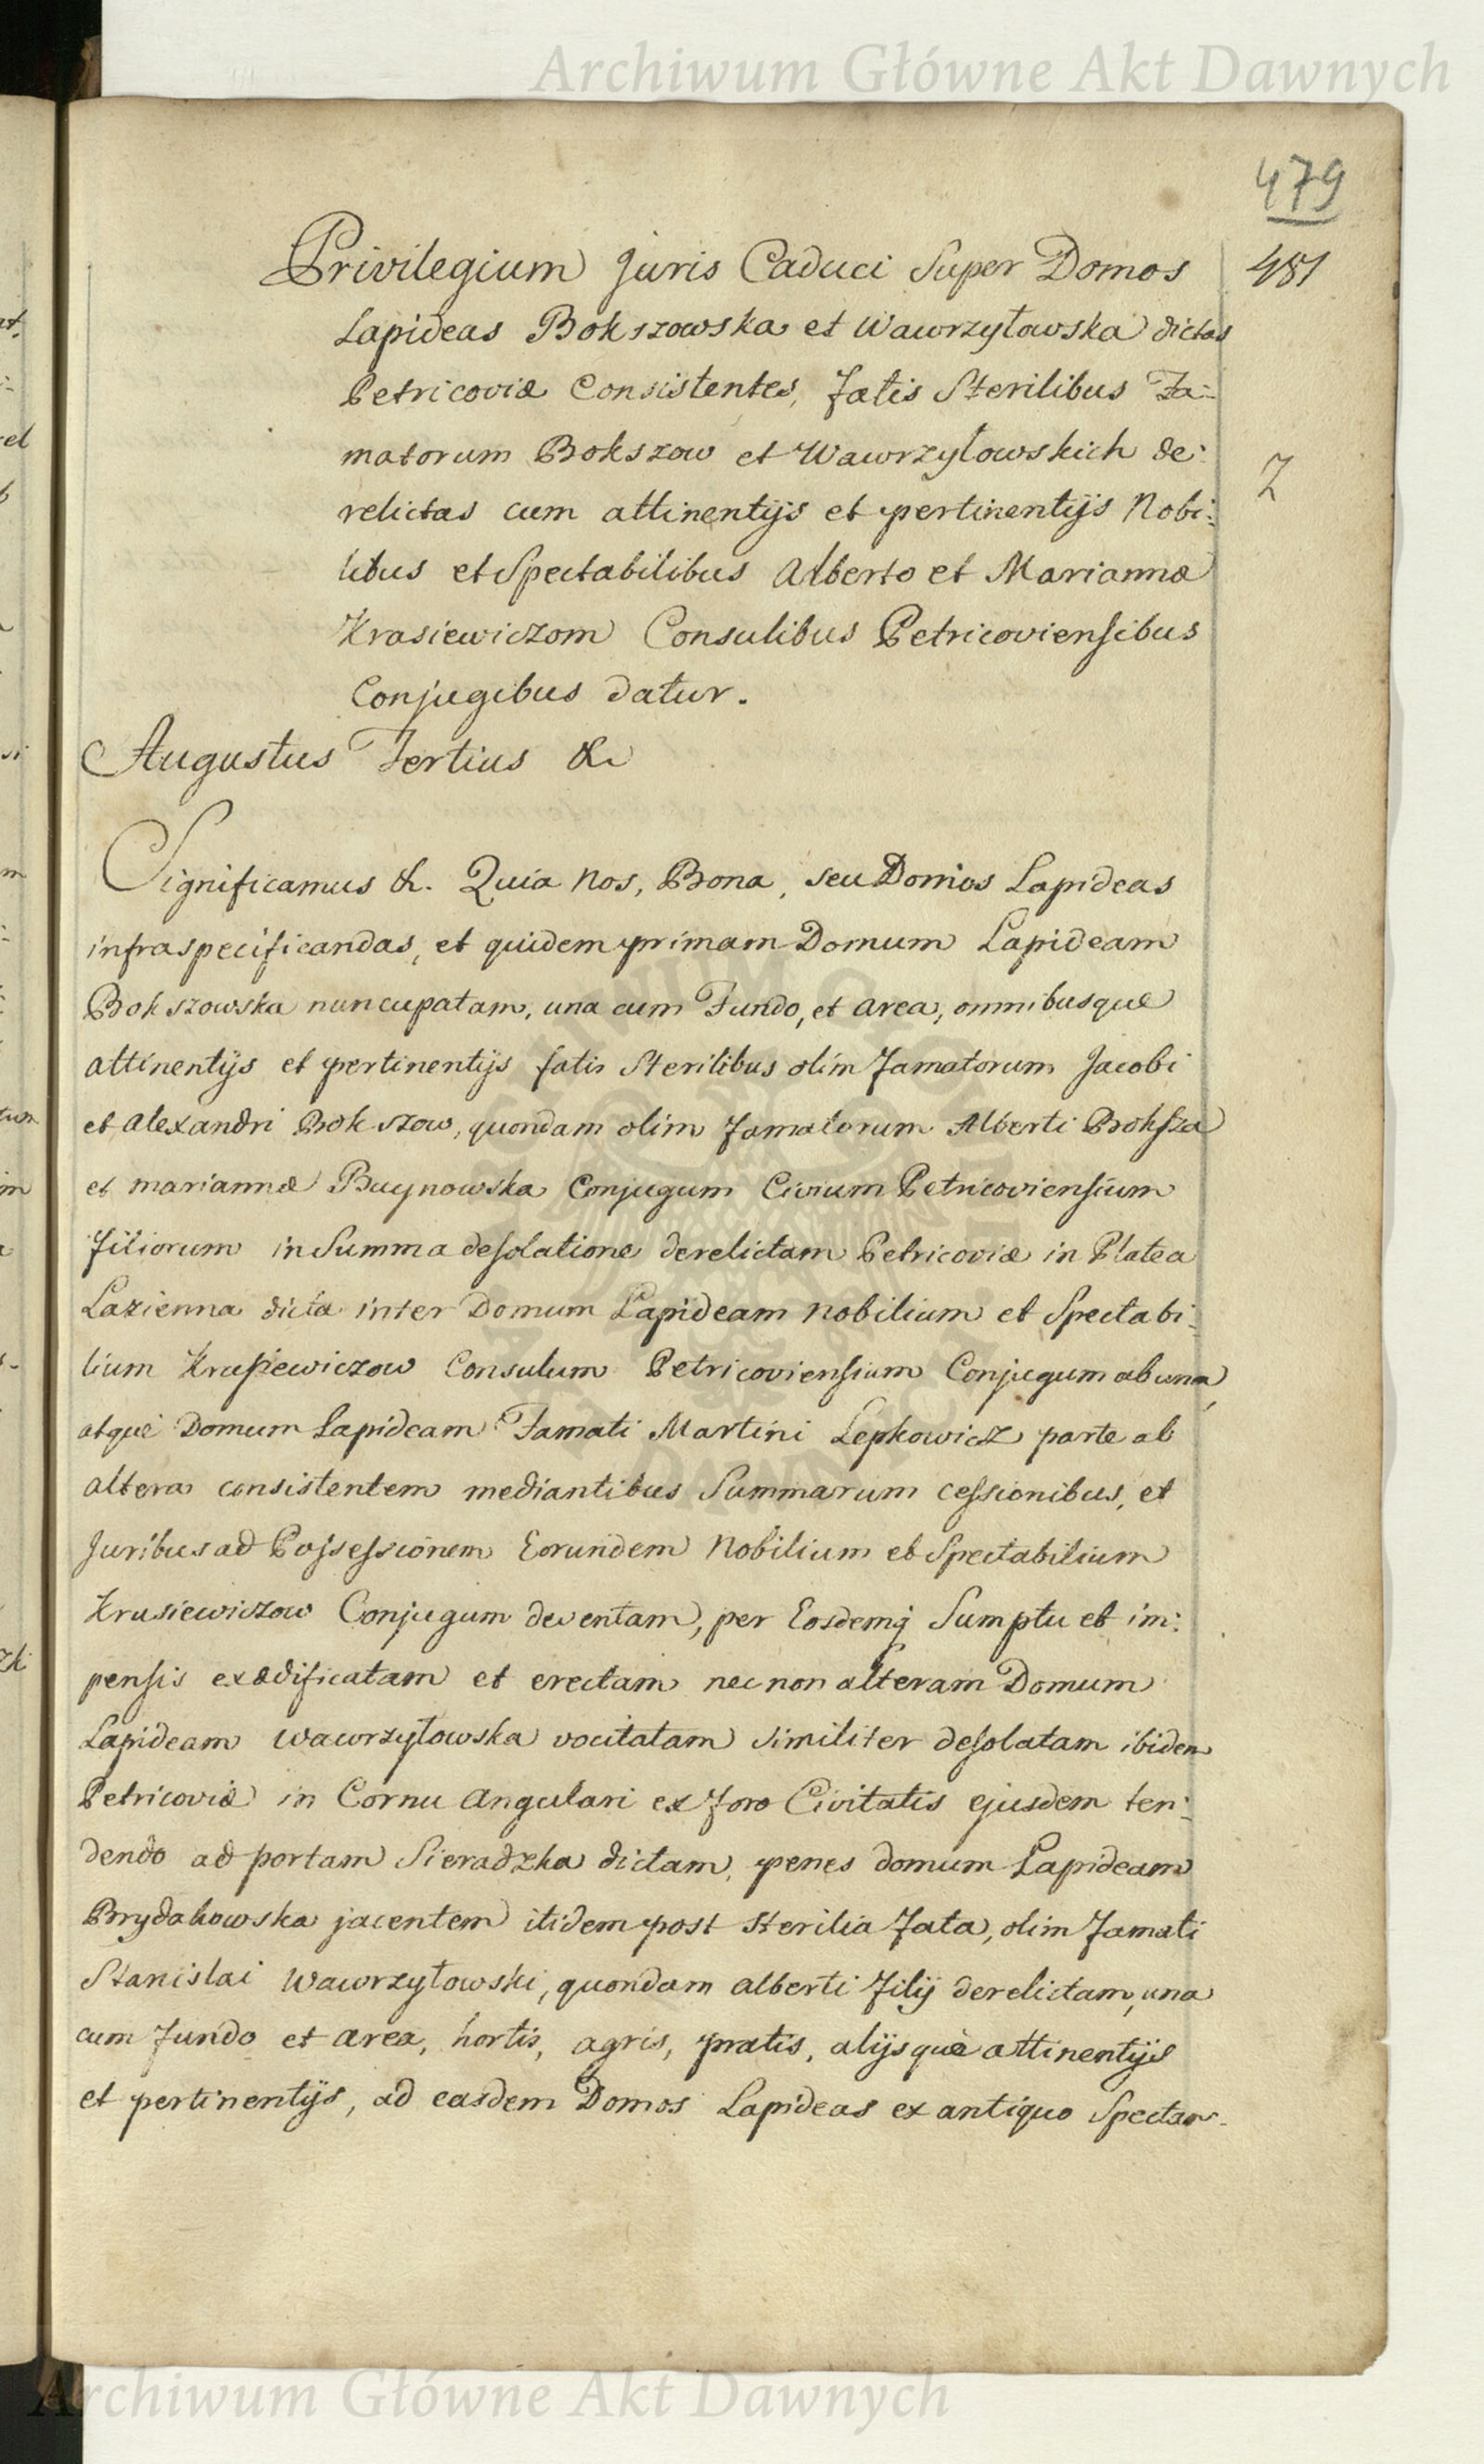 Archiwum Główne Akt Dawnych
479
481
Privilegium Juris Caduci Super Domos
Lapideas Bokszowska et Wawrzyłowska dictas
Petricoviæ Consistentes, fatis Sterilibus Fa-
matorum Bokszow et Wawrzyłowskich de-
relictas cum attinentijs et pertinentijs Nobi-
libus et Spectabilibus Alberto et Mariannæ
Krasiewiczom Consulibus Petricoviensibus
Conjugibus datur.
Augustus Tertius &
Significamus &. Quia Nos, Bona, seu Domos Lapideas
infraspecificandas, et quidem primam Domum Lapideam
Bokszowska nuncupatam, una cum Fundo, et area, omnibusque
attinentijs et pertinentijs fatis Sterilibus olim Famatorum Jacobi
et Alexandri Bokszow, quondam olim Famatorum AlbertiBoksza
et mariannæ Buynowska Conjugum Civium Petricoviensium
Filiorum in Summa desolatione derelictam Petricoviæ in Platea
Lazienna dicta inter Domum Lapideam Nobilium et Spectabi-
lium Krusiewiczow Consulum Petricoviensium Conjugum ab una,
atque Domum Lapideam Famati Martini Lepkowicz parte ab
altera consistentem mediantibus Summarum cessionibus, et
Juribus ad Possessionem Eorundem Nobilium et Spectabilium
Krusiewiczow Conjugum deventam, per Eosdemq Sumptu et im-
pensis exædificatam et erectam nec non alteram Domum
Lapideam Wawrzyłowska vocitatam similiter desolatam ibidem
Petricoviæ in Cornu Angulari ex Foro Civitatis ejusdem ten-
dendo ad portam Sieradzka dictam, penes domum Lapideam
jacentem itidem post Sterilia Fata, olim Famati
Stanislai Wawrzyłowski, quondam Alberti Filij derelictam, una
cum Fundo et area, hortis, agris, pratis, alijsque attinentijs
et pertinentijs, ad easdem Domos Lapideas ex antiquo Spectan-
Archiwum Główne Akt Dawnych